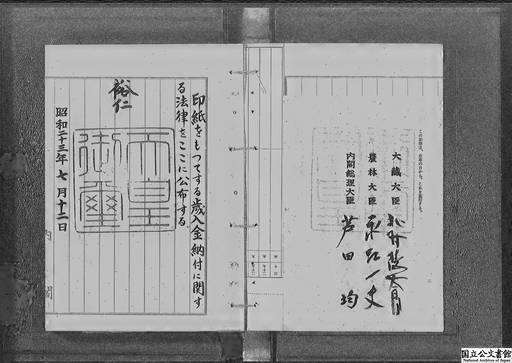 この法律は、公布の日から、これを施行する。
大藏大臣 北村徳太郎
農林大臣 永江一夫
内閣総理大臣 芦田均
印紙をもつてする歳入金納付に関す
る法律をここに公布する
裕仁
天皇
御璽
昭和二十三年七月十二日
内閣
国立公文書館
National Archives of Japan